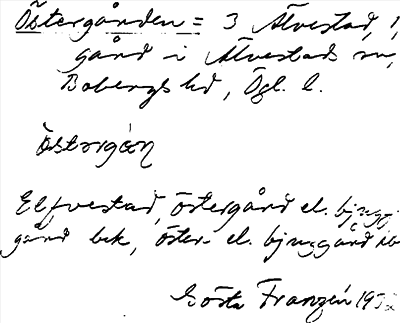 Östergården = 3 Älvestad, 1,
gård i Älvestads sn,
Bobergs hd, Ögl. l.
Östergån
Elfvestad, östergård el. bjugg-
gård bek, öster- el. bjuggård ib
Gösta Franzén 1932